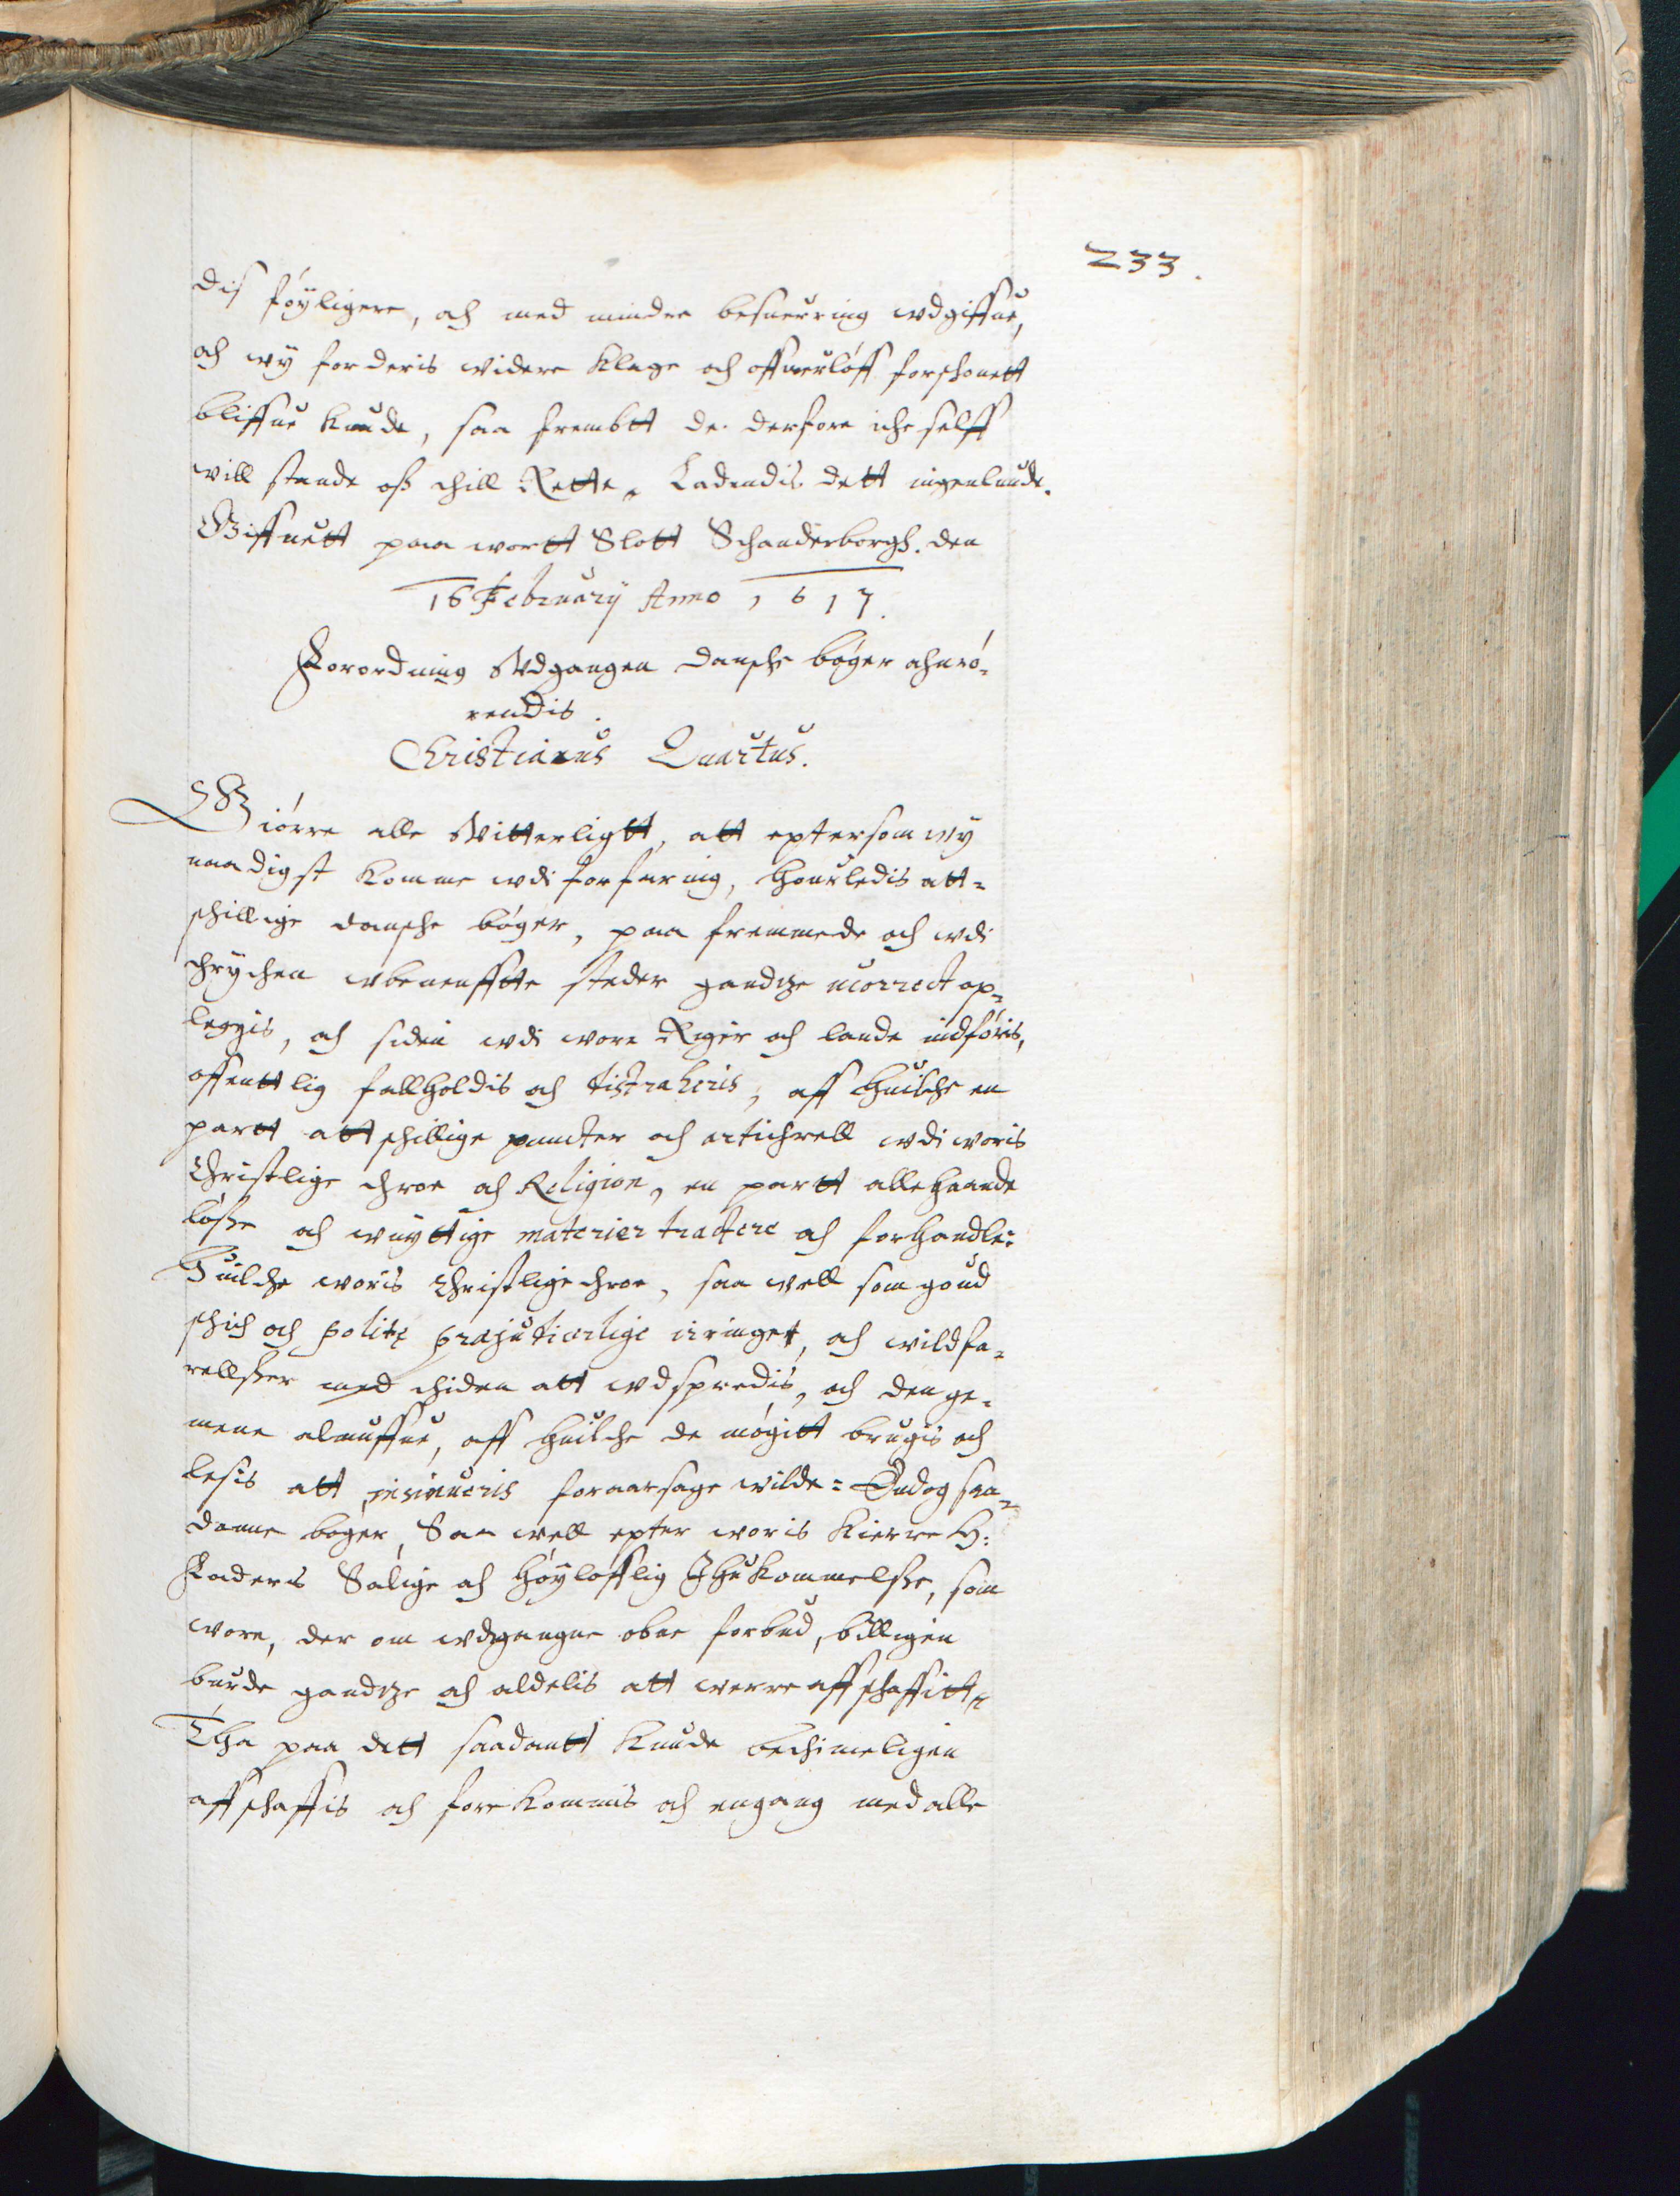 233.
dis føyligere, och med mindre besuerring wdgiffue,
och wy for deris widere klage och offuerløff forschonett
bliffue kunde, saa frembtt de derfore iche selff
will stande oß thill Rette, Ladendis dett ingenlunde.
Giffuett paa wortt Slott Schanderborgh. den
16 February Anno 1617.
Forordning Wdgangen danske bøger ahnrø-
rendis.
Christianus Quartus.
Giøre alle Witterligtt, att epter som wy
naadigst komme wdi forfaring, huorledis att-
schillige dansche bøger, paa fremmede och wdi
thrychen wbenenffte steder gandtze incorrect op-
leggis, och siden wdi wore Riger och lande indføris,
offenttlig fallholdis och distraheris, aff huilche en
partt attschillige puncter och artichell wdi woris
Christlige throe och Religion, en partt allehaande
løße och wnyttige materier tractere och forhandle:
Huilche woris Christlige throe, saa well som goud
schich och politi præjudicerlige irringer, och wildfa-
rellßer med thiden att wdspredis, och den ge-
mene almuffue, aff huilche de møgitt brugis och
lesis att insinueris foraarsage wilde: Endog saa-
danne bøger, Saa well epter woris Kierre H:
Faders Salige och høyløfflig Ihukommelße, som
wore, der om wdgangne obne forbud, billigen
burde gandtze och aldelis att werre affschaffitt,
Tha paa dett saadantt kunde bequemeligen
affschaffis och forekommis och engang med alle